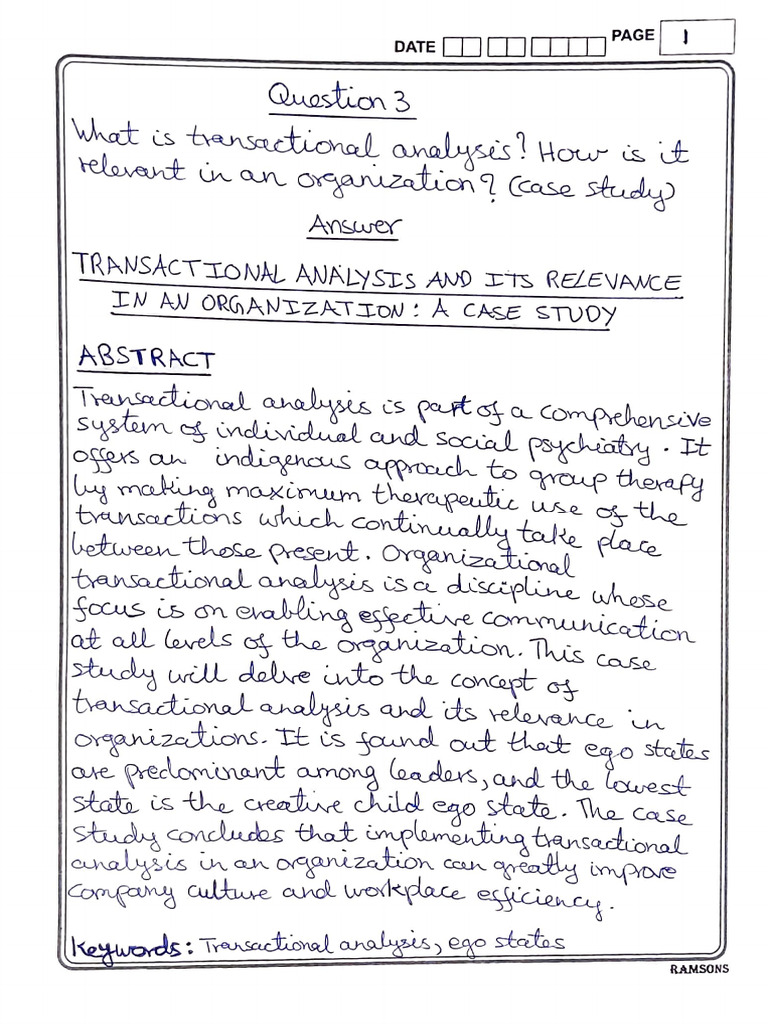 DATE PAGE 1
Question 3
What is transactional analysis? How is it
relevant in an organization? (case study)
Answer
TRANSACTIONAL ANALYSIS AND ITS RELEVANCE
IN AN ORGANIZATION: A CASE STUDY
ABSTRACT
Transactional analysis is part of a comprehensive
system of individual and social psychiatry. It
offers an indigenous approach to group therapy
by making maximum therapeutic use of the
transactions which continually take place
between those present. Organizational
transactional analysis is a discipline whose
focus is on enabling effective communication
at all levels of the organization. This case
study will delve into the concept of
transactional analysis and its relevance in
organizations. It is found out that ego states
are predominant among leaders, and the lowest
state is the creative child ego state. The case
study concludes that implementing transactional
analysis in an organization can greatly improve
company culture and workplace efficiency.
Keywords: Transactional analysis, ego states
RAMSONS